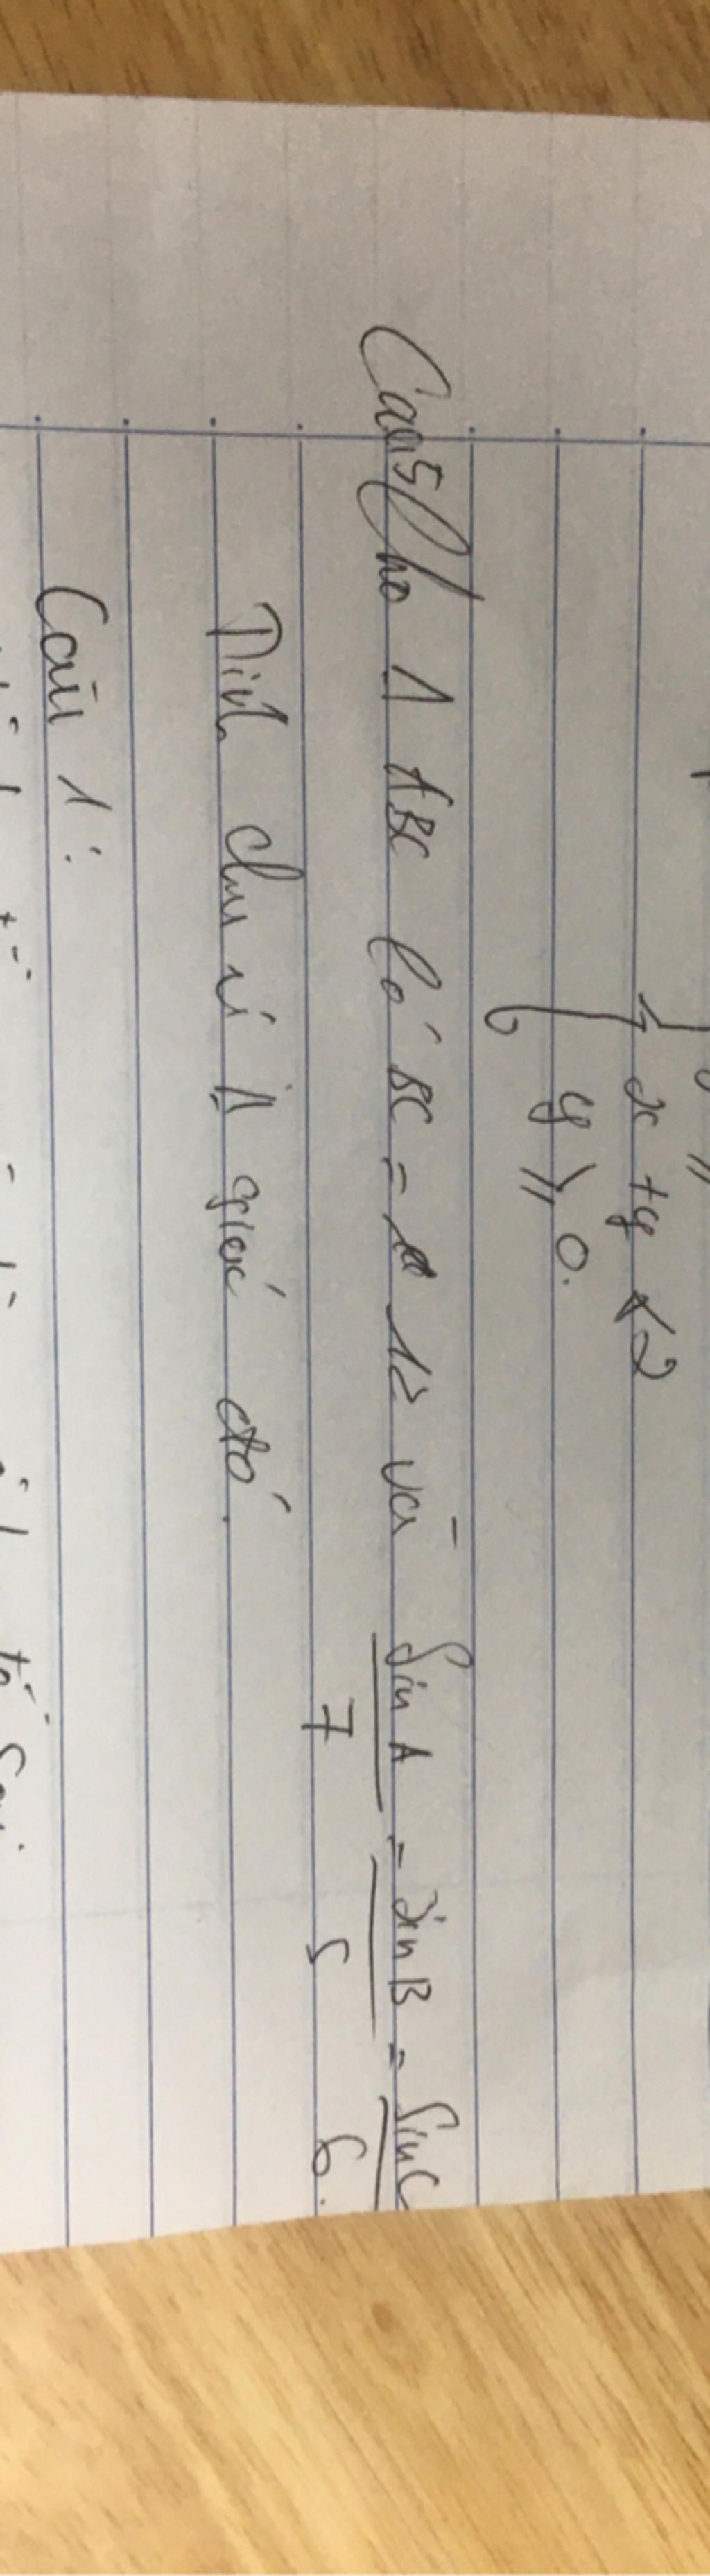 x + y < 2
y ⩾ 0.
Câu 5 Cho Δ ABC Có BC = 12 và Sin A / 7 = Sin B / 5 = Sin C / 6.
Tính chu vi Δ giác đó.
Câu 1: